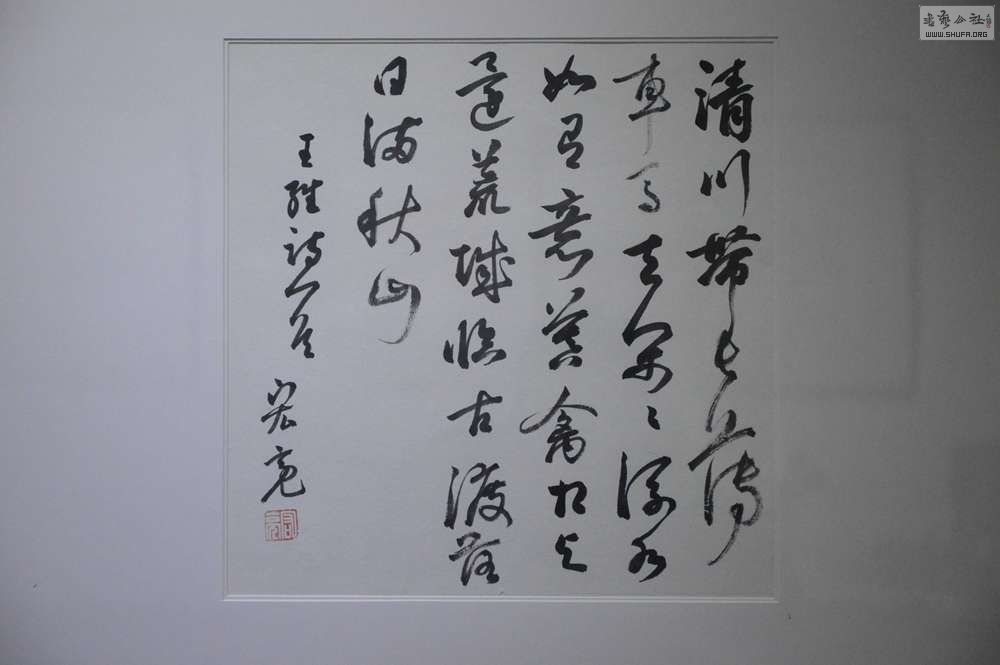 清川帶長薄
車馬去閑〻流水
如有意暮禽相与
還荒城臨古渡落
日滿秋山
王維詩一首 宏亮
書藝公社
WWW.SHUFA.ORG